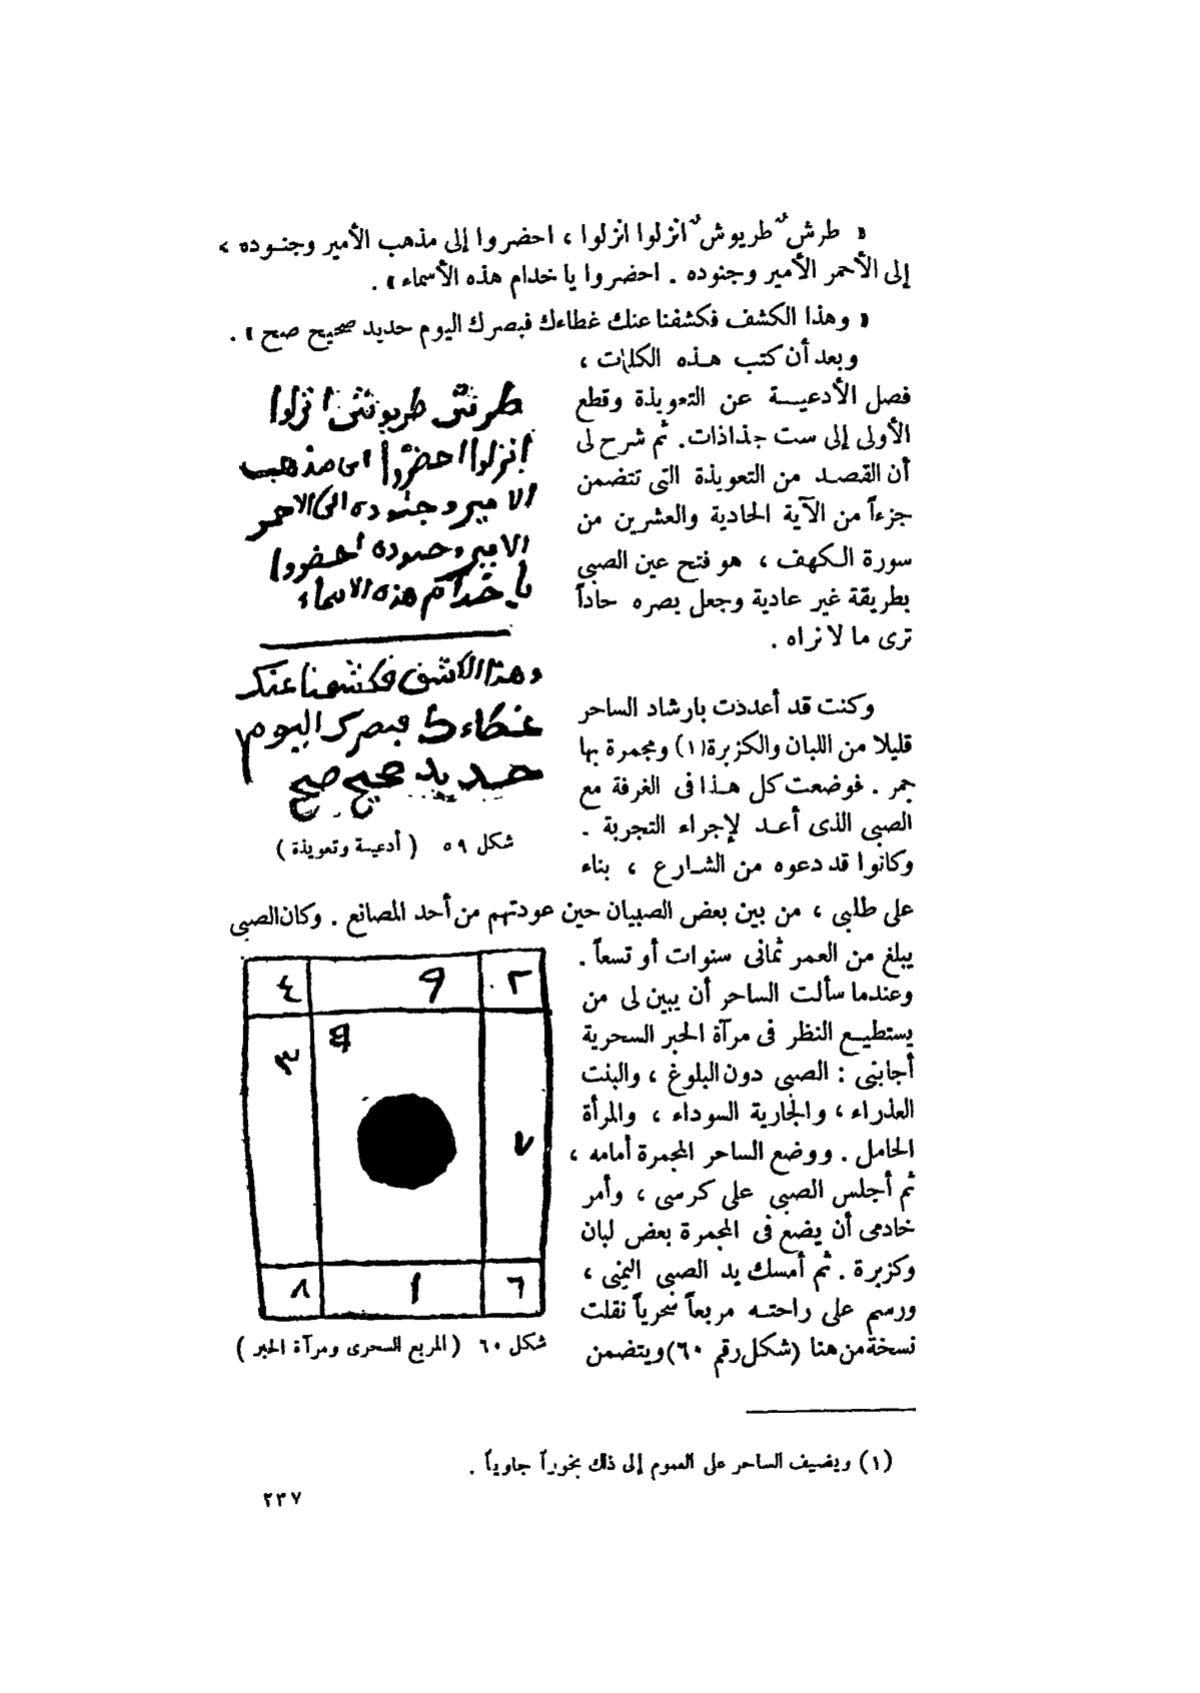 « طرشٌ طريوشٌ انزلوا انزلوا ، احضروا إلى مذهب الأمير وجنوده ،
إلى الأحمر الأمير وجنوده . احضروا يا خدام هذه الأسماء » .
« وهذا الكشف فكشفنا عنك غطاءك فبصرك اليوم حديد صحيح صح » .
وبعد أن كتب هذه الكلمات ،
فصل الأدعية عن التعويذة وقطع
الأولى إلى ست جذاذات. ثم شرح لى
أن القصد من التعويذة التى تتضمن
جزءاً من الآية الحادية والعشرين من
سورة الكهف ، هو فتح عين الصبى
بطريقة غير عادية وجعل بصره حاداً
ترى ما لا نراه .
طرش طريوش انزلوا
انزلوا احضروا الى مذهب
الامير وجنوده الى الاحمر
الامير وجنوده احضروا
يا خدام هذه الاسماء
وهذا الكشف فكشفنا عنك
غطاءك فبصرك اليوم
حديد صحيح صح
شكل ٥٩ ( أدعية وتعويذة )
وكنت قد أعددت بارشاد الساحر
قليلا من اللبان والكزبرة(١) ومجمرة بها
جمر . فوضعت كل هذا فى الغرفة مع
الصبى الذى أعد لإجراء التجربة .
وكانوا قد دعوه من الشارع ، بناء
على طلبى ، من بين بعض الصبيان حين عودتهم من أحد المصانع . وكان الصبى
يبلغ من العمر ثمانى سنوات أو تسعاً .
وعندما سألت الساحر أن يبين لى من
يستطيع النظر فى مرآة الحبر السحرية
أجابنى : الصبى دون البلوغ ، والبنت
العذراء ، والجارية السوداء ، والمرأة
الحامل . ووضع الساحر المجمرة أمامه ،
ثم أجلس الصبى على كرسى ، وأمر
خادمى أن يضع فى المجمرة بعض لبان
وكزبرة . ثم أمسك يد الصبى اليمنى ،
ورسم على راحته مربعاً سحرياً نقلت
نسخة من هنا (شكل رقم ٦٠) ويتضمن
٢ ٩ ٤
٣
٧
٦ ١ ٨
شكل ٦٠ ( المربع السحرى ومرآة الحبر )
(١) ويضيف الساحر على العموم إلى ذلك بخوراً جاوياً .
٢٣٧